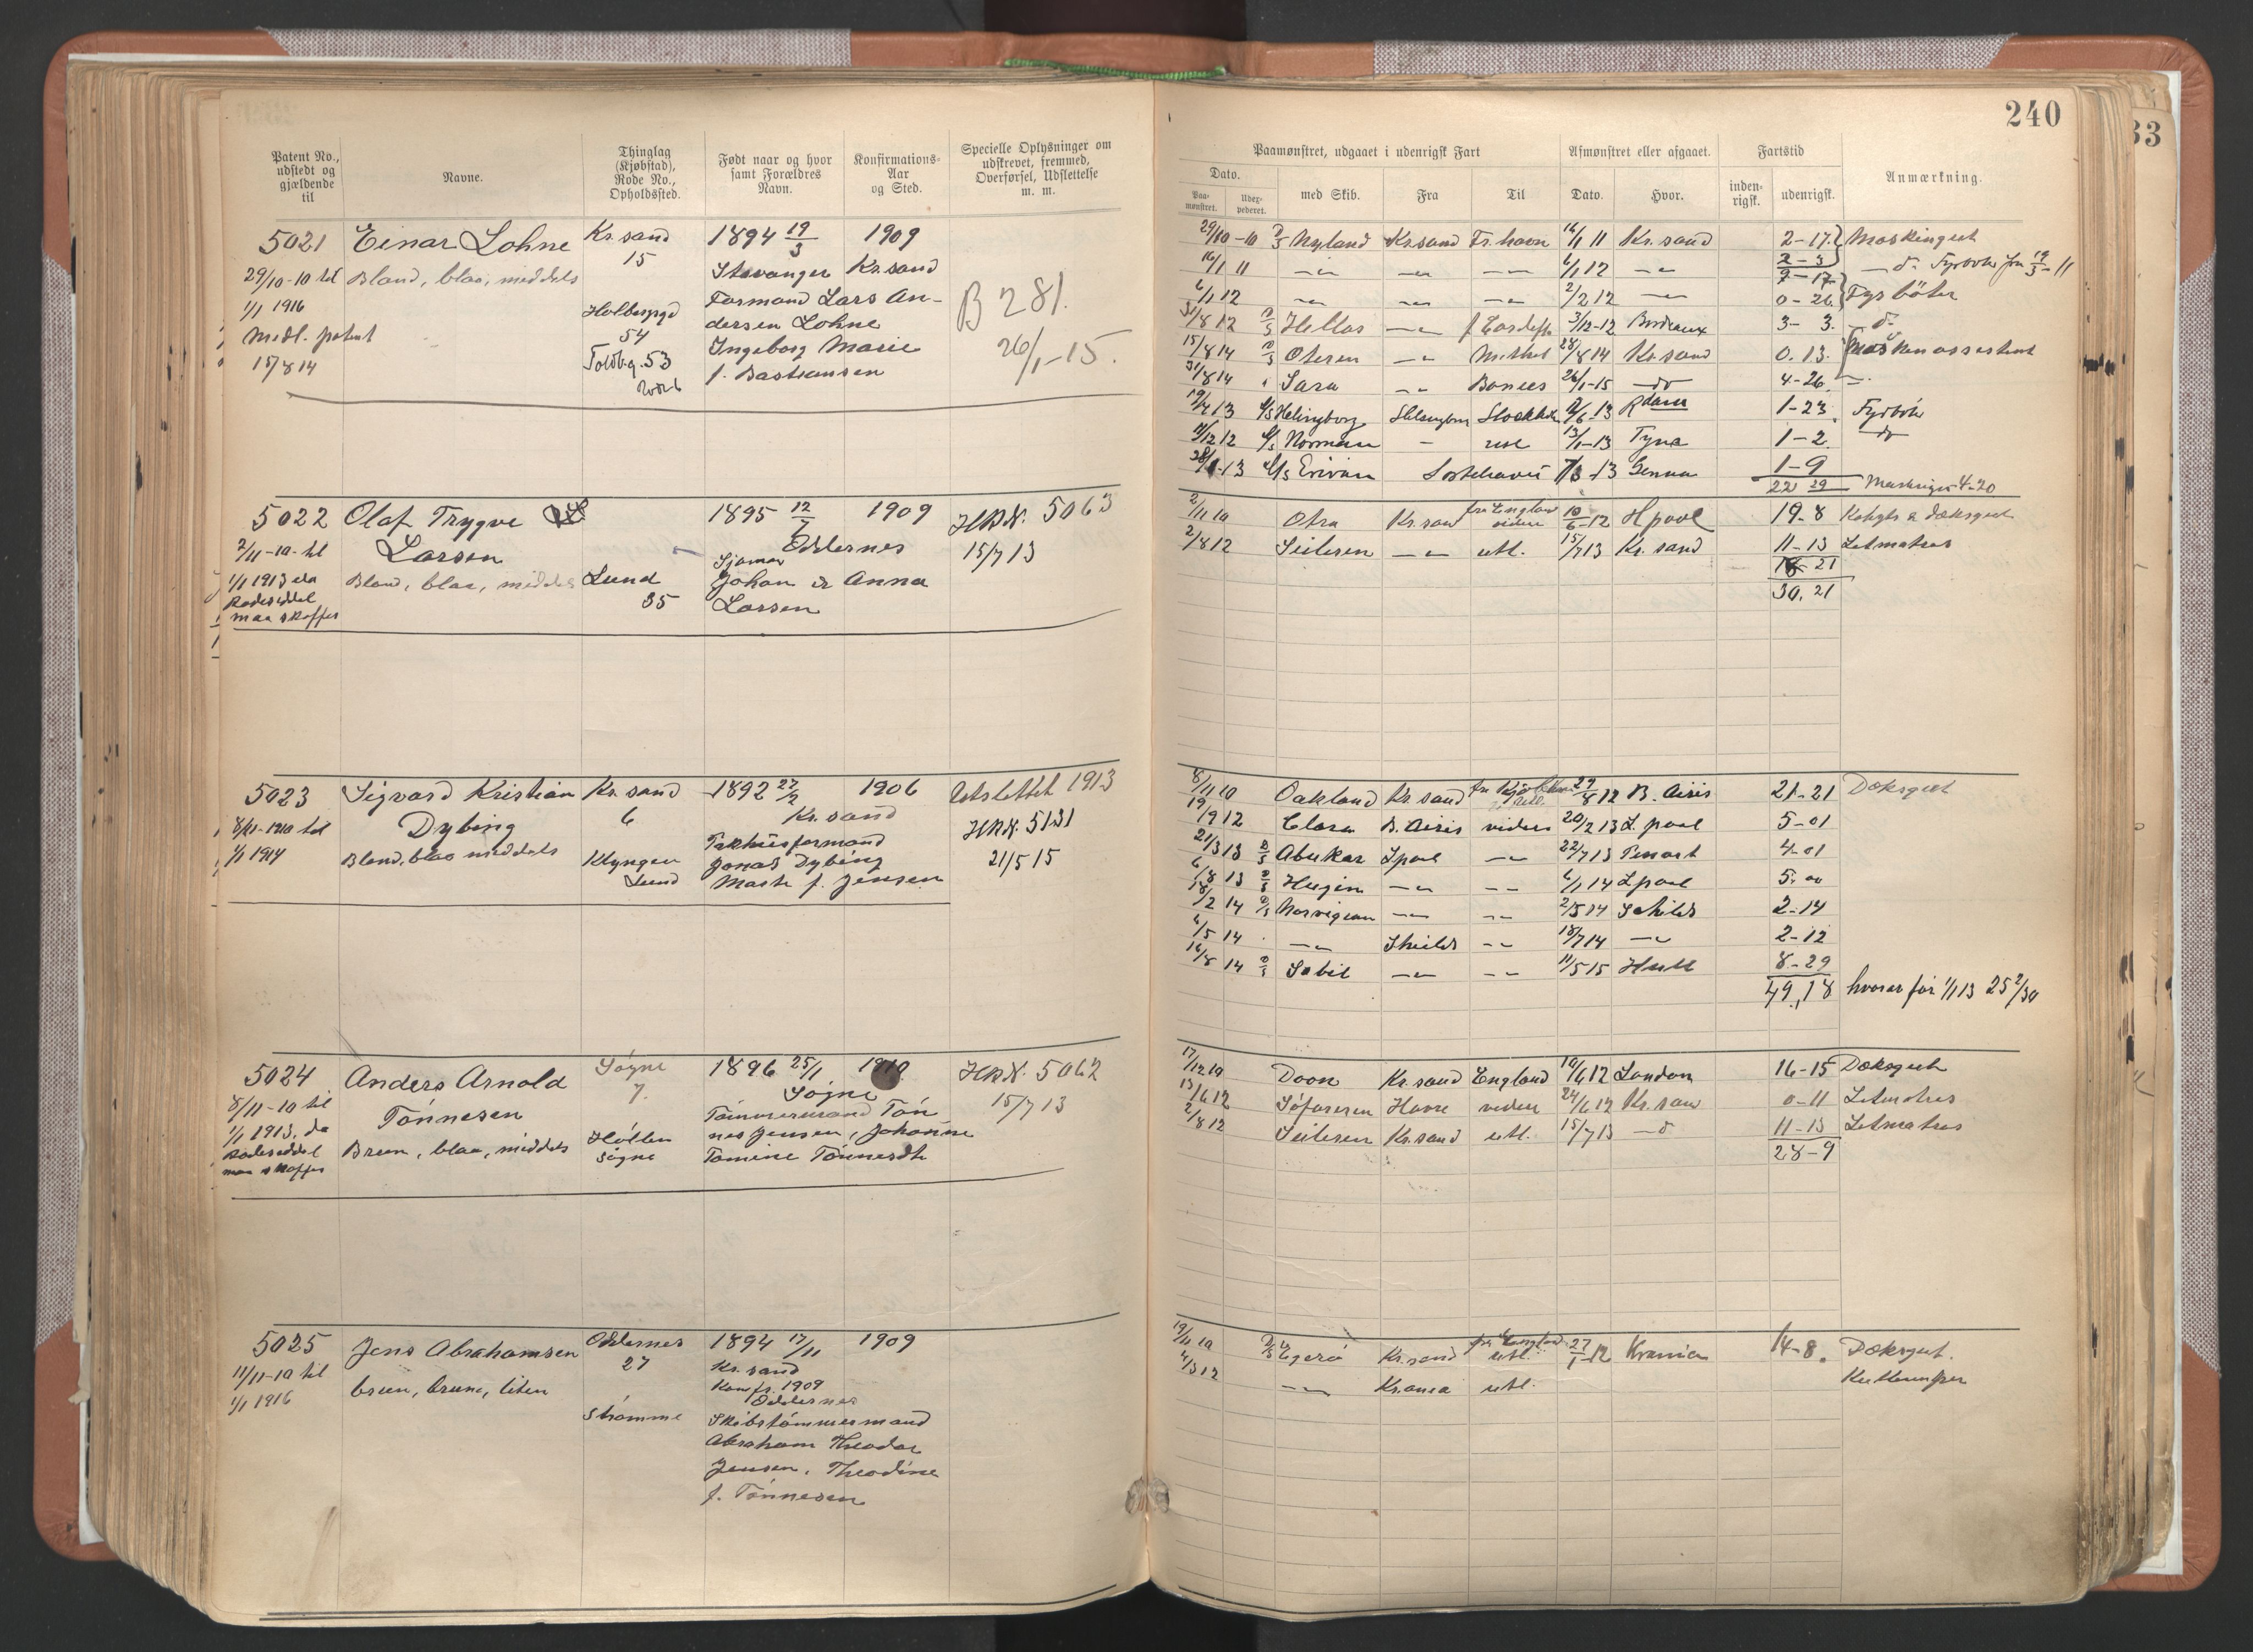 240
33
Patent No., udstedt og gjældende til
Navne.
Thinglag (Kjøbstad), Rode No., Opholdssted.
Født naar og hvor samt Forældres Navn.
Konfirmations-Aar og Sted.
Specielle Oplysninger om udskrevet, fremmed, Overførsel, Udslettelse m. m.
Paamønstret, udgaaet i udenrigsk Fart
Afmønstret eller afgaaet.
Fartstid
Anmærkning.
Dato.
Paa-mønstret.
Udex-pederet.
med Skib.
Fra
Til
Dato.
Hvor.
inden-rigsk.
udenrigsk.
5021 Einar Lohne Kr. sand 1894 19/3 1909
15
29/10-10 til Blond, blaa, middels Stavanger Kr. sand
1/1 1916 Formand Lars An-
Holbergsgd dersen Lohne B 281.
Medl. patent 54 Ingeborg Marie 26/1-15.
15/8 14 Toldbg. 53 f. Bastiansen
29/10-10 D/S Nyland Kr sand Fr. havn 16/1 11 Kr. sand 2-17 Maskingut
16/1 11 6/1 12 2-3 Fyrbøter fra 19/3-11
9-17
6/1 12 2/2 12 0-26 Fyrbøter
31/8 12 D/S Hellas 3/12-12 Bordeaux 3-3
15/8 14 D/S Oteren 28/8 14 Kr. sand 0.13 Maskinassistent
31/8 14 Sara 26/1-15 do 4-26
19/4 13 D/S Helsingborg 13 Rdam 1-23 Fyrbøter
11/12 12 D/S Norman 13/1-13 Tyne 1-2 do
1-13 D/S Erivan 13 Genua 1-9
22 29 4-20
5022 Olaf Trygve 1895 12/7 1909 HRN. 5063
2/11-10 til Larsen Oddernes 15/7 13
1/1 1913 da Blond, blaa, middels Lund Sjømand
Rodeseddel 35 Johan & Anna
maa skaffes Larsen
2/11 10 Otra Kr. sand fra England viden 10/6-12 Hpool 19-8 Kahyts & Dæksgut
2/8 12 Seileren utl. 15/7 13 Kr. sand 11-13 Letmatros
18-21
30.21
5023 Sigvard Kristian Kr. sand 1892 27/2 1906 Utslettet 1913
8/11-1910 til Dybing 6 Kr. sand HRN. 5131
1/1 1914 Blond, blaa middels Klyngen Pakhusformand 21/5 15
Lund Jonas Dybing
Marte f. Jensen
8/11 10 Oakland Kr sand 27/8 12 B. Aires 21-21 Dæksgut
19/9 12 Clara B. Aires viden 20/2 13 L. pool 5-01
21/3 13 D/S Abukar Lpool 22/7 13 Penart 4-01
6/8 13 D/S Hugin 6/1 14 Lpool 5.00
18/2 14 D/S Norvegian 2/5 14 Schilds 2-14
6/5 14 Shields 18/7 14 2-12
16/8 14 D/S Sabil 11/5 15 Hull 8-29
49,18 hvorav før 1/1 13 25 2/30
5024 Anders Arnold Søgne 1896 25/1 1910 HRN. 5062
8/11-10 til Tønnesen 7. Søgne 15/7 13
1/1 1913, da Tømmermand Tøn
Rodeseddel Brun, blaa, middels Høllen nes Jensen, Johanne
maa skaffes Søgne Tomine Tønnesdt
17/12 10 Doon Kr sand England 10/6 12 London 16-15 Dæksgut
13/6 12 Havre viden 24/6 12 Kr. sand 0-11 Letmatros
2/8 12 Seileren Kr. sand utl. 15/7 13 11-13 Letmatros
28-9
5025 Jens Abrahamsen Oddernes 1894 17/11 1909
11/11-10 til 27 Kr. sand
1/1 1916 brun, brune, liten Konfr. 1909
Oddernes
Strømme Skibstømmermand
Abraham Theodor
Jensen, Theodine
f. Tønnesen
19/11 10 D/S Egerø Kr. sand fra England utl. 27/1-12 Krania 14-8. Dæksgut.
4/3 12 Krania utl. Kullemper